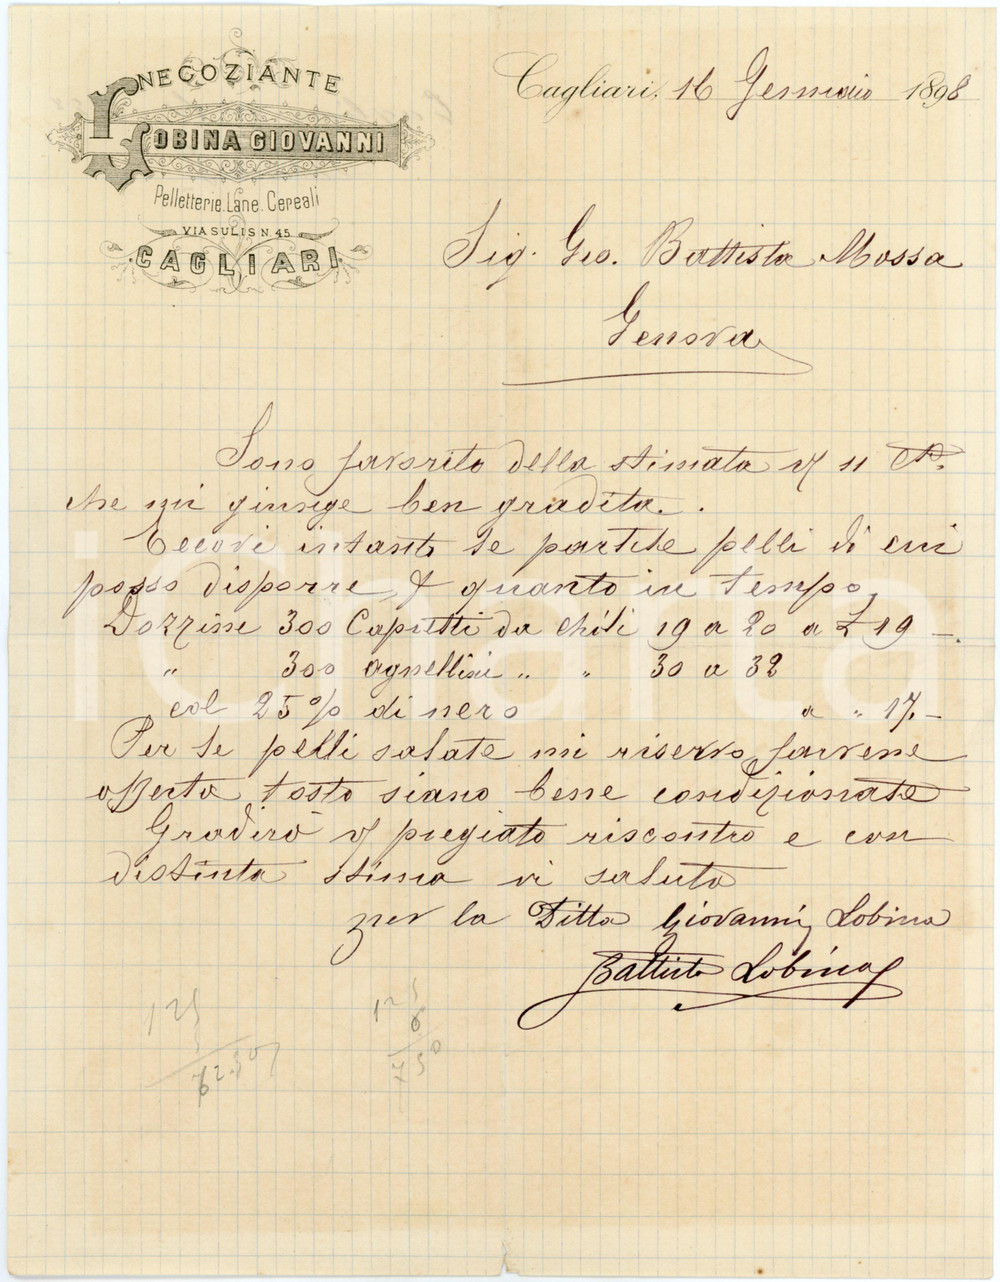 NEGOZIANTE
LOBINA GIOVANNI
Pelletterie. Lane. Cereali
VIA SULIS N. 45
CAGLIARI
Cagliari, 16 Gennaio 1898
Sig. Gio. Battista Mossa
Genova
Sono favorito della stimata 11
che mi giunge ben gradita.
Eccovi intanto le partite pelli di cui
posso disporre, & quanto in tempo,
Dozzine 300 Capretti da chili 19 a 20 a £ 19 -.
" 300 agnellini " " 30 a 32
col 25% di nero a " 17. -
Per le pelli salate mi riservo farvene
offerta tosto siano bene condizionate
Gradirò pregiato riscontro e con
distinta stima vi saluto
per la Ditta Giovanni Lobina
Battista Lobina
125 125
6
62.50 750
iCharta